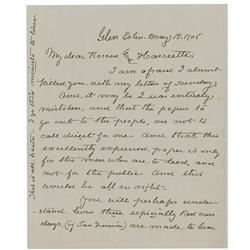 Glen Echo. May 13. 1906
My dear Roscoe & Harriette
I am afraid I almost
killed you with my letter of Sunday
And it may be I was entirely
mistaken, and that the papers to
go out to the posts, are not to
call direct for me. And that this
excellently expressed paper is only
for the men who are to lead, and
not for the public. And this
would be all so right.
You will perhaps under-
stand, how these especially Red Cross
days, (of San Francisco) are made to bear
This is all haste. I go this minute to